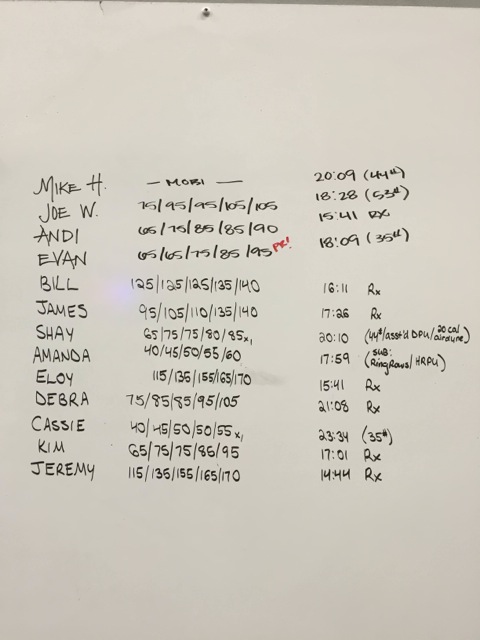 MIKE H. — MOBI — 20:09 (44#)
JOE W. 75/95/95/105/105 18:28 (53#)
ANDI 65/75/85/85/90 15:41 RX
EVAN 65/65/75/85/95 PR! 18:09 (35#)
BILL 125/125/125/135/140 16:11 Rx
JAMES 95/105/110/135/140 17:26 Rx
SHAY 65/75/75/80/85x1 20:10 (44#/asst'd DPU/20 cal airdyne)
AMANDA 40/45/50/55/60 17:59 (SUB: Ring Rows/HRPU)
ELOY 115/135/155/165/170 15:41 Rx
DEBRA 75/85/85/95/105 21:08 Rx
CASSIE 40/45/50/50/55x1 23:34 (35#)
KIM 65/75/75/85/95 17:01 Rx
JEREMY 115/135/155/165/170 14:44 Rx